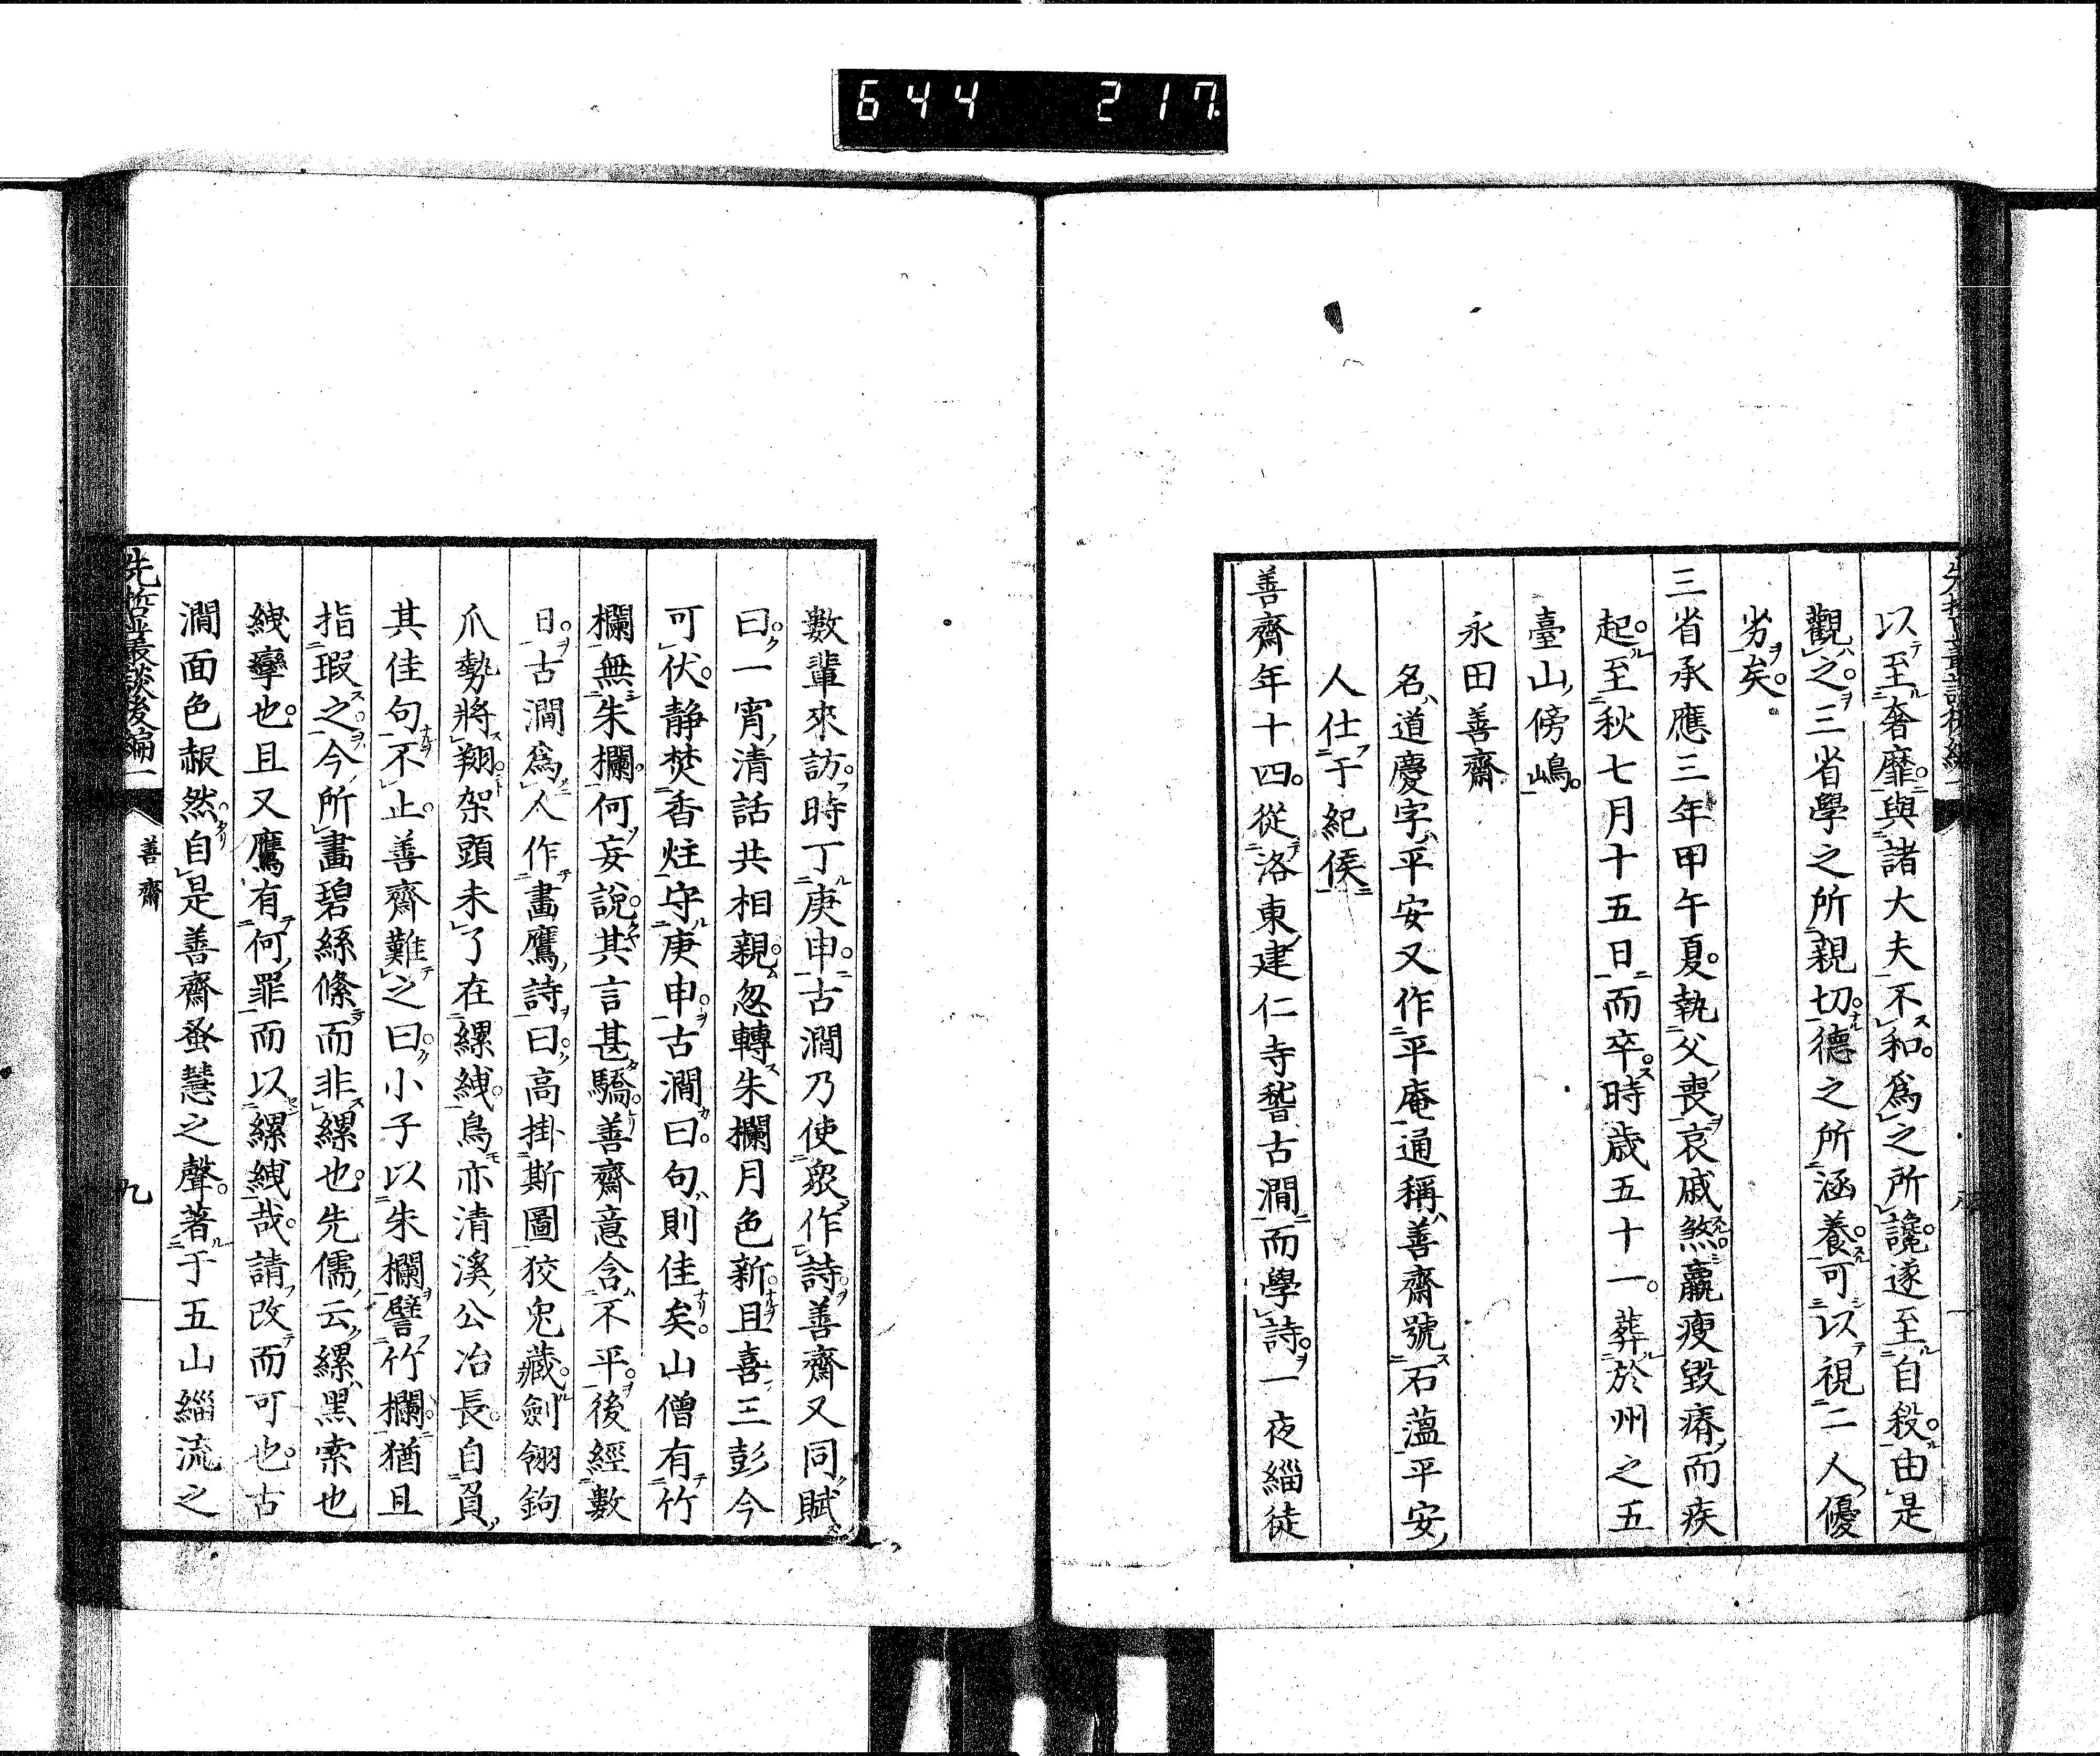 644 217
以至奢靡與諸大夫不和爲之所讒遂至自殺由是
觀之三省學之所親切德之所涵養可以視二人優
劣矣
三省承應三年甲午夏執父喪哀戚煞羸瘦毀瘠而疾
起至秋七月十五日而卒時歳五十一葬於州之五
臺山傍嶋
永田善齋
名道慶字平安又作平庵通稱善齋號石薀平安
人仕于紀侯
善齋年十四從洛東建仁寺稽古澗而學詩一夜緇徒
數輩來訪時丁庚申古澗乃使衆作詩善齋又同賦
曰一宵清話共相親忽轉朱欄月色新且喜三彭今
可伏静焚香炷守庚申古澗曰句則佳矣山僧有竹
欄無朱欄何妄說其言甚驕善齋意含不平後經數
日古澗爲人作畫鷹詩曰高掛斯圖狡兔藏劍翎鉤
爪勢將翔架頭未了在縲絏鳥亦清溪公冶長自負
其佳句不止善齋難之曰小子以朱欄譬竹欄猶且
指瑕之今所畫碧絲絛而非縲也先儒云縲黑索也
絏攣也且又鷹有何罪而以縲絏哉請改而可也古
澗面色赧然自是善齋蚤慧之聲著于五山緇流之
先哲叢談後編一
善齋
九